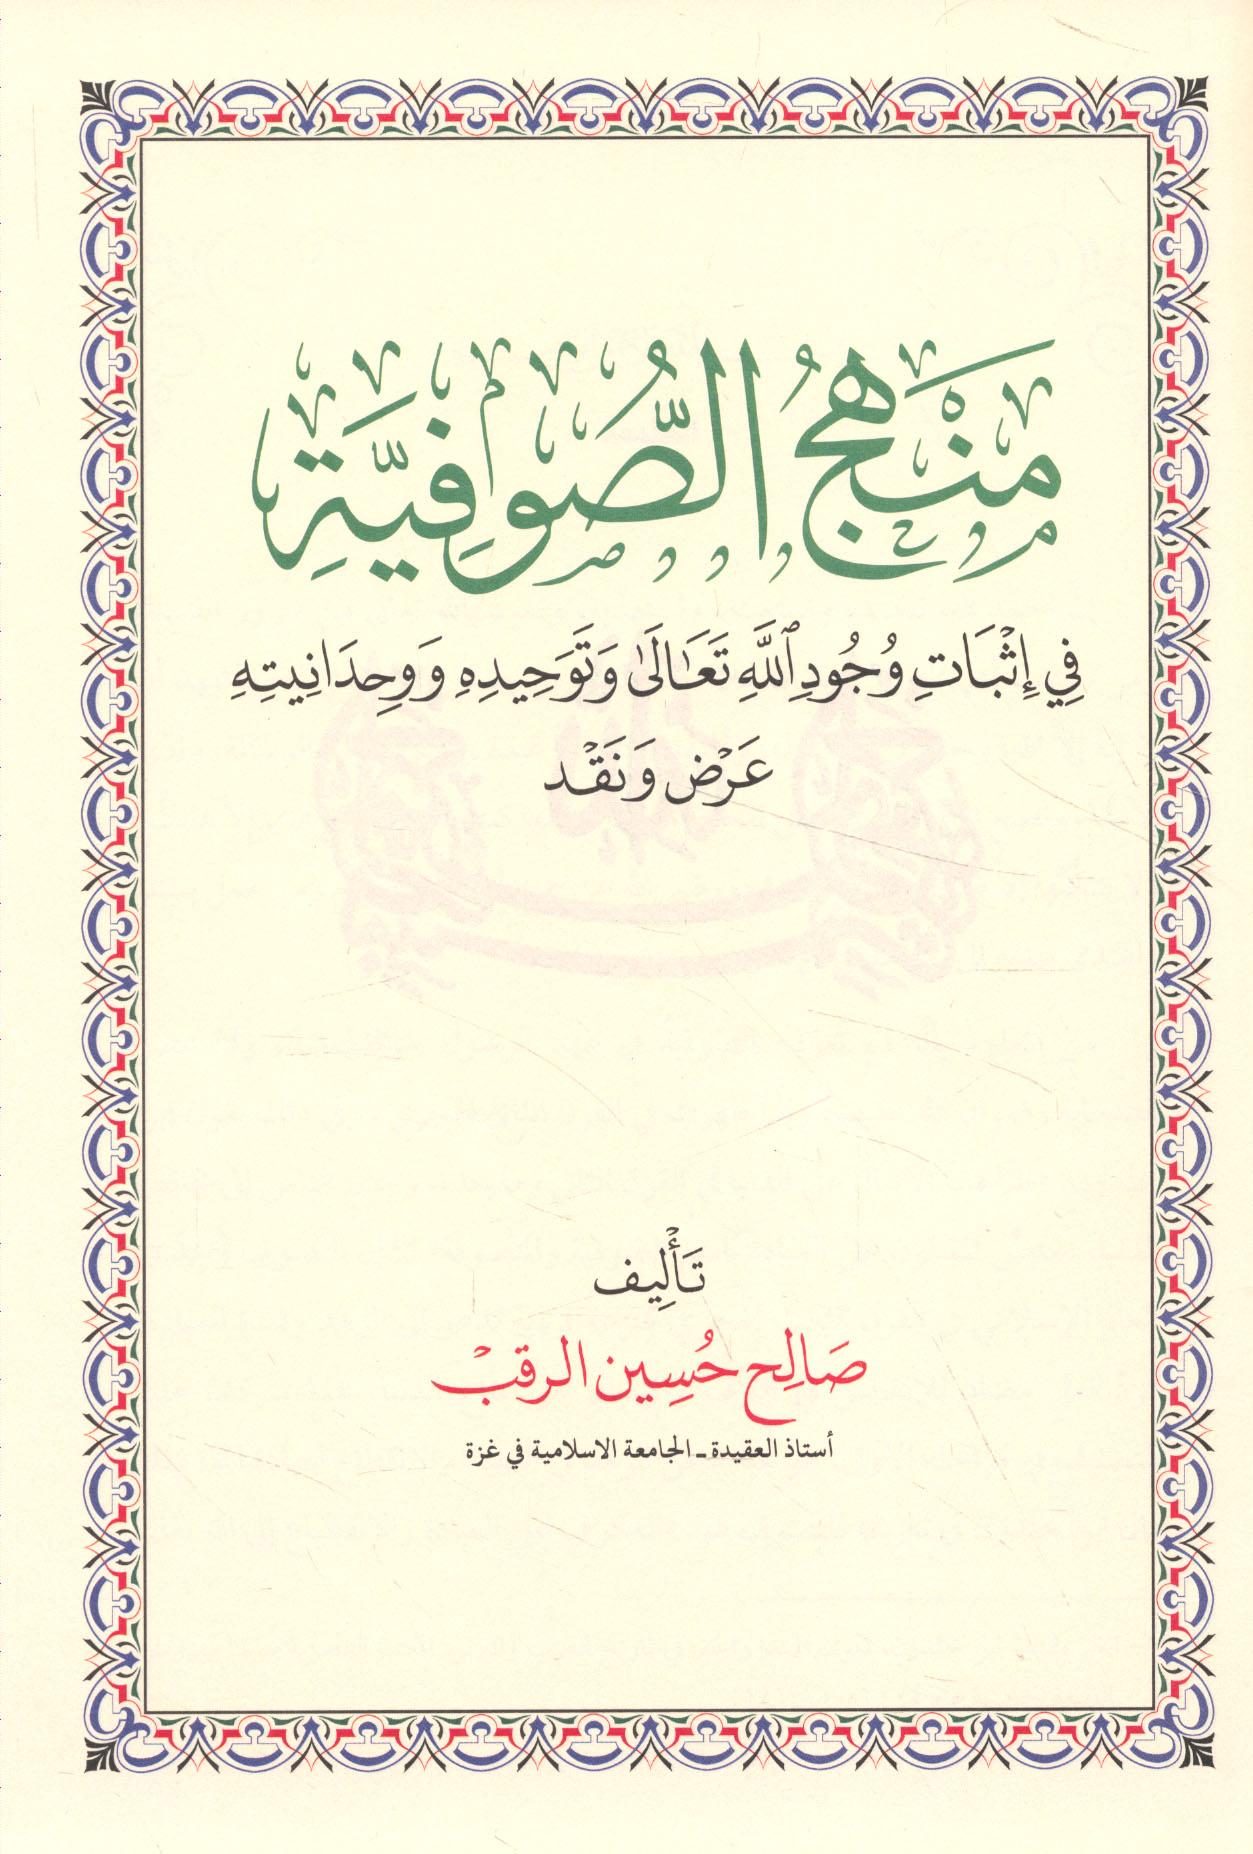 مَنْهَجُ الصُّوفِيَّةِ
فِي إِثْبَاتِ وُجُودِ ٱللَّهِ تَعَالَىٰ وَتَوَحِيدِهِ وَوِحِدَانِيتِهِ
عَرْض وَنَقْد
تَأْلِيف
صَالِح حُسِين الرقب
أستاذ العقيدة - الجامعة الاسلامية في غزة